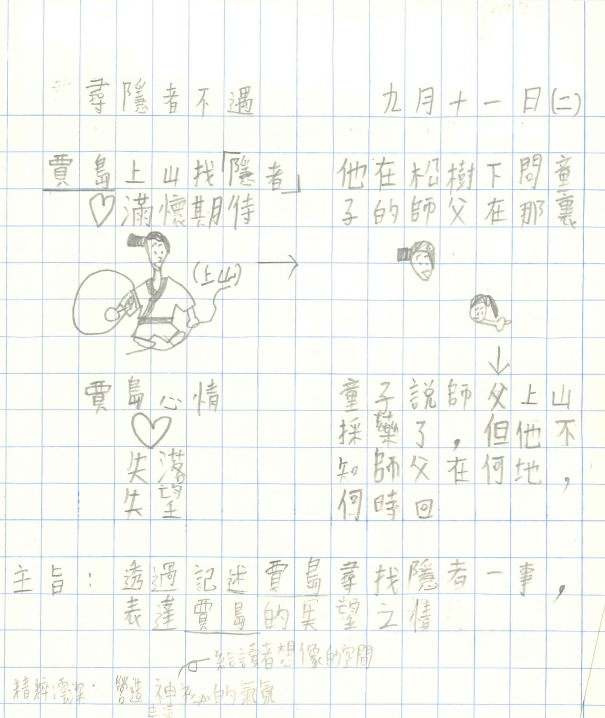 尋隱者不遇　九月十一日(二)
賈島上山找「隱者」
♡滿懷期待
(上山)
他在松樹下問童
子的師父在那裏
童子說師父上山
採藥了，但他不
知師父在何地，
何時回
賈島心情
失落
失望
主旨：透過記述賈島尋找隱者一事，
表達賈島的失望之情
給讀者想像的空間
營造神祕的氣氛